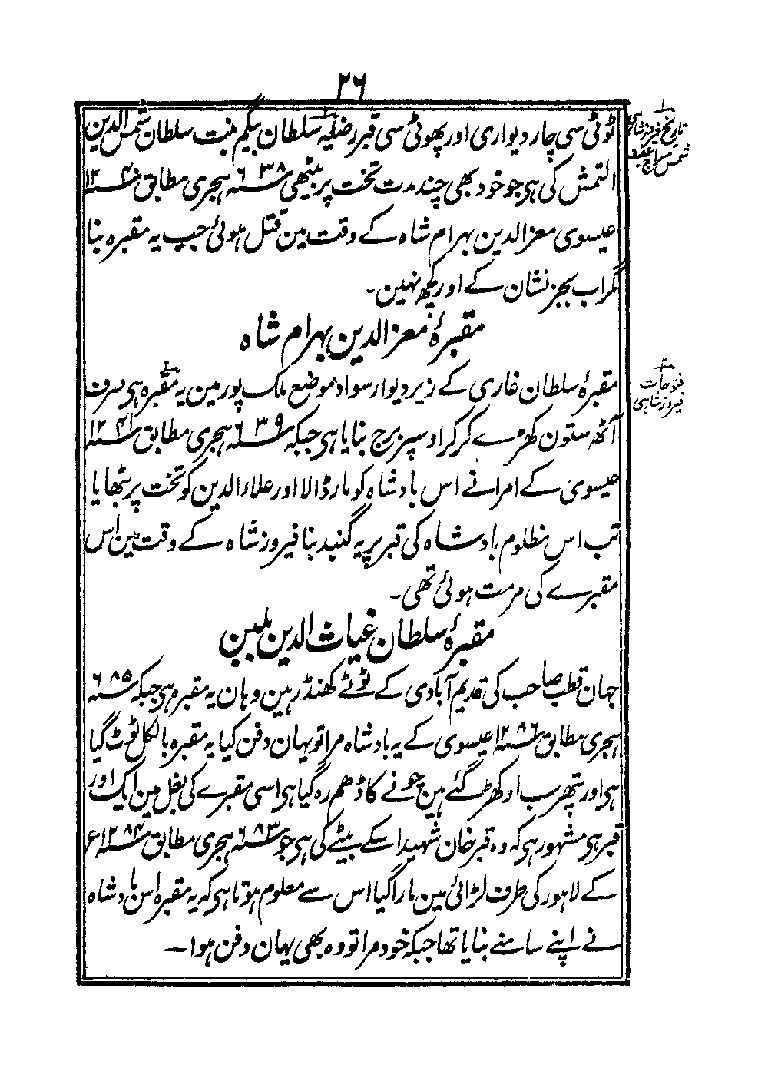 ۲۶
ٹوٹی سی چار دیواری اور پھوٹی سی قبر رضیہ سلطان بیگم بنت سلطان شمس الدین
التمش کی ہی جو خود بھی چند مدت تخت پر بیٹھی سنہ ۶۳۸ ہجری مطابق سنہ ۱۲۴۰
عیسوی معز الدین بہرام شاہ کے وقت مین قتل ہوئی جب یہ مقبرہ بنا
مگر اب بجز نشان کے اور کچھ نہین ۔
مقبرۂ معز الدین بہرام شاہ
مقبرۂ سلطان غاری کے زیر دیوار سواد موضع ملک پور مین یہ مقبرہ ہی صرف
آٹھ ستون کھڑے کر کر اوسپر برج بنایا ہی جبکہ سنہ ۶۳۹ ہجری مطابق سنہ ۱۲۴۱
عیسوی کے امرا نے اس بادشاہ کو مار ڈالا اور علاء الدین کو تخت پر بٹھایا
تب اس مظلوم بادشاہ کی قبر پر یہ گنبد بنا فیروز شاہ کے وقت مین اس
مقبرے کی مرمت ہوئی تھی ۔
مقبرۂ سلطان غیاث الدین بلبن
جہان قطب صاحب کی قدیم آبادی کے ٹوٹے کھنڈر ہین وہان یہ مقبرہ ہی جبکہ سنہ ۶۸۵
ہجری مطابق سنہ ۱۲۸۶ عیسوی کے یہ بادشاہ مرا تو یہان دفن کیا یہ مقبرہ بالکل ٹوٹ گیا
ہی اور پتھر سب اوکھڑ گئے ہین چونے کا ڈھم رہ گیا ہی اسی مقبرے کی بغل مین ایک اور
قبر ہی مشہور ہی کہ وہ قبر خان شہید اسکے بیٹے کی ہی جو سنہ ۶۸۳ ہجری مطابق سنہ ۱۲۸۴ ع
کے لاہور کی طرف لڑائی مین مارا گیا اس سے معلوم ہوتا ہی کہ یہ مقبرہ اس بادشاہ
نے اپنے سامنے بنایا تھا جبکہ خود مرا تو وہ بھی یہان دفن ہوا ۔
۱
تاریخ فیروز شاہی
شمس سراج عفیف
۲
فتوحات
فیروز شاہی